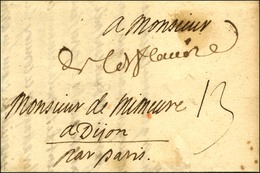 a Monsieur
Monsieur de Mimeure 13
a Dijon
par paris.